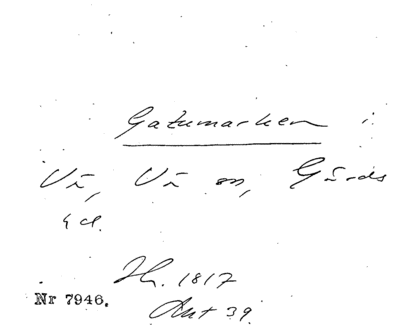 Gatumarken i
Vä, Vä sn, Gärds
hd.
Jh. 1817
Akt 39.
Nr 7946.